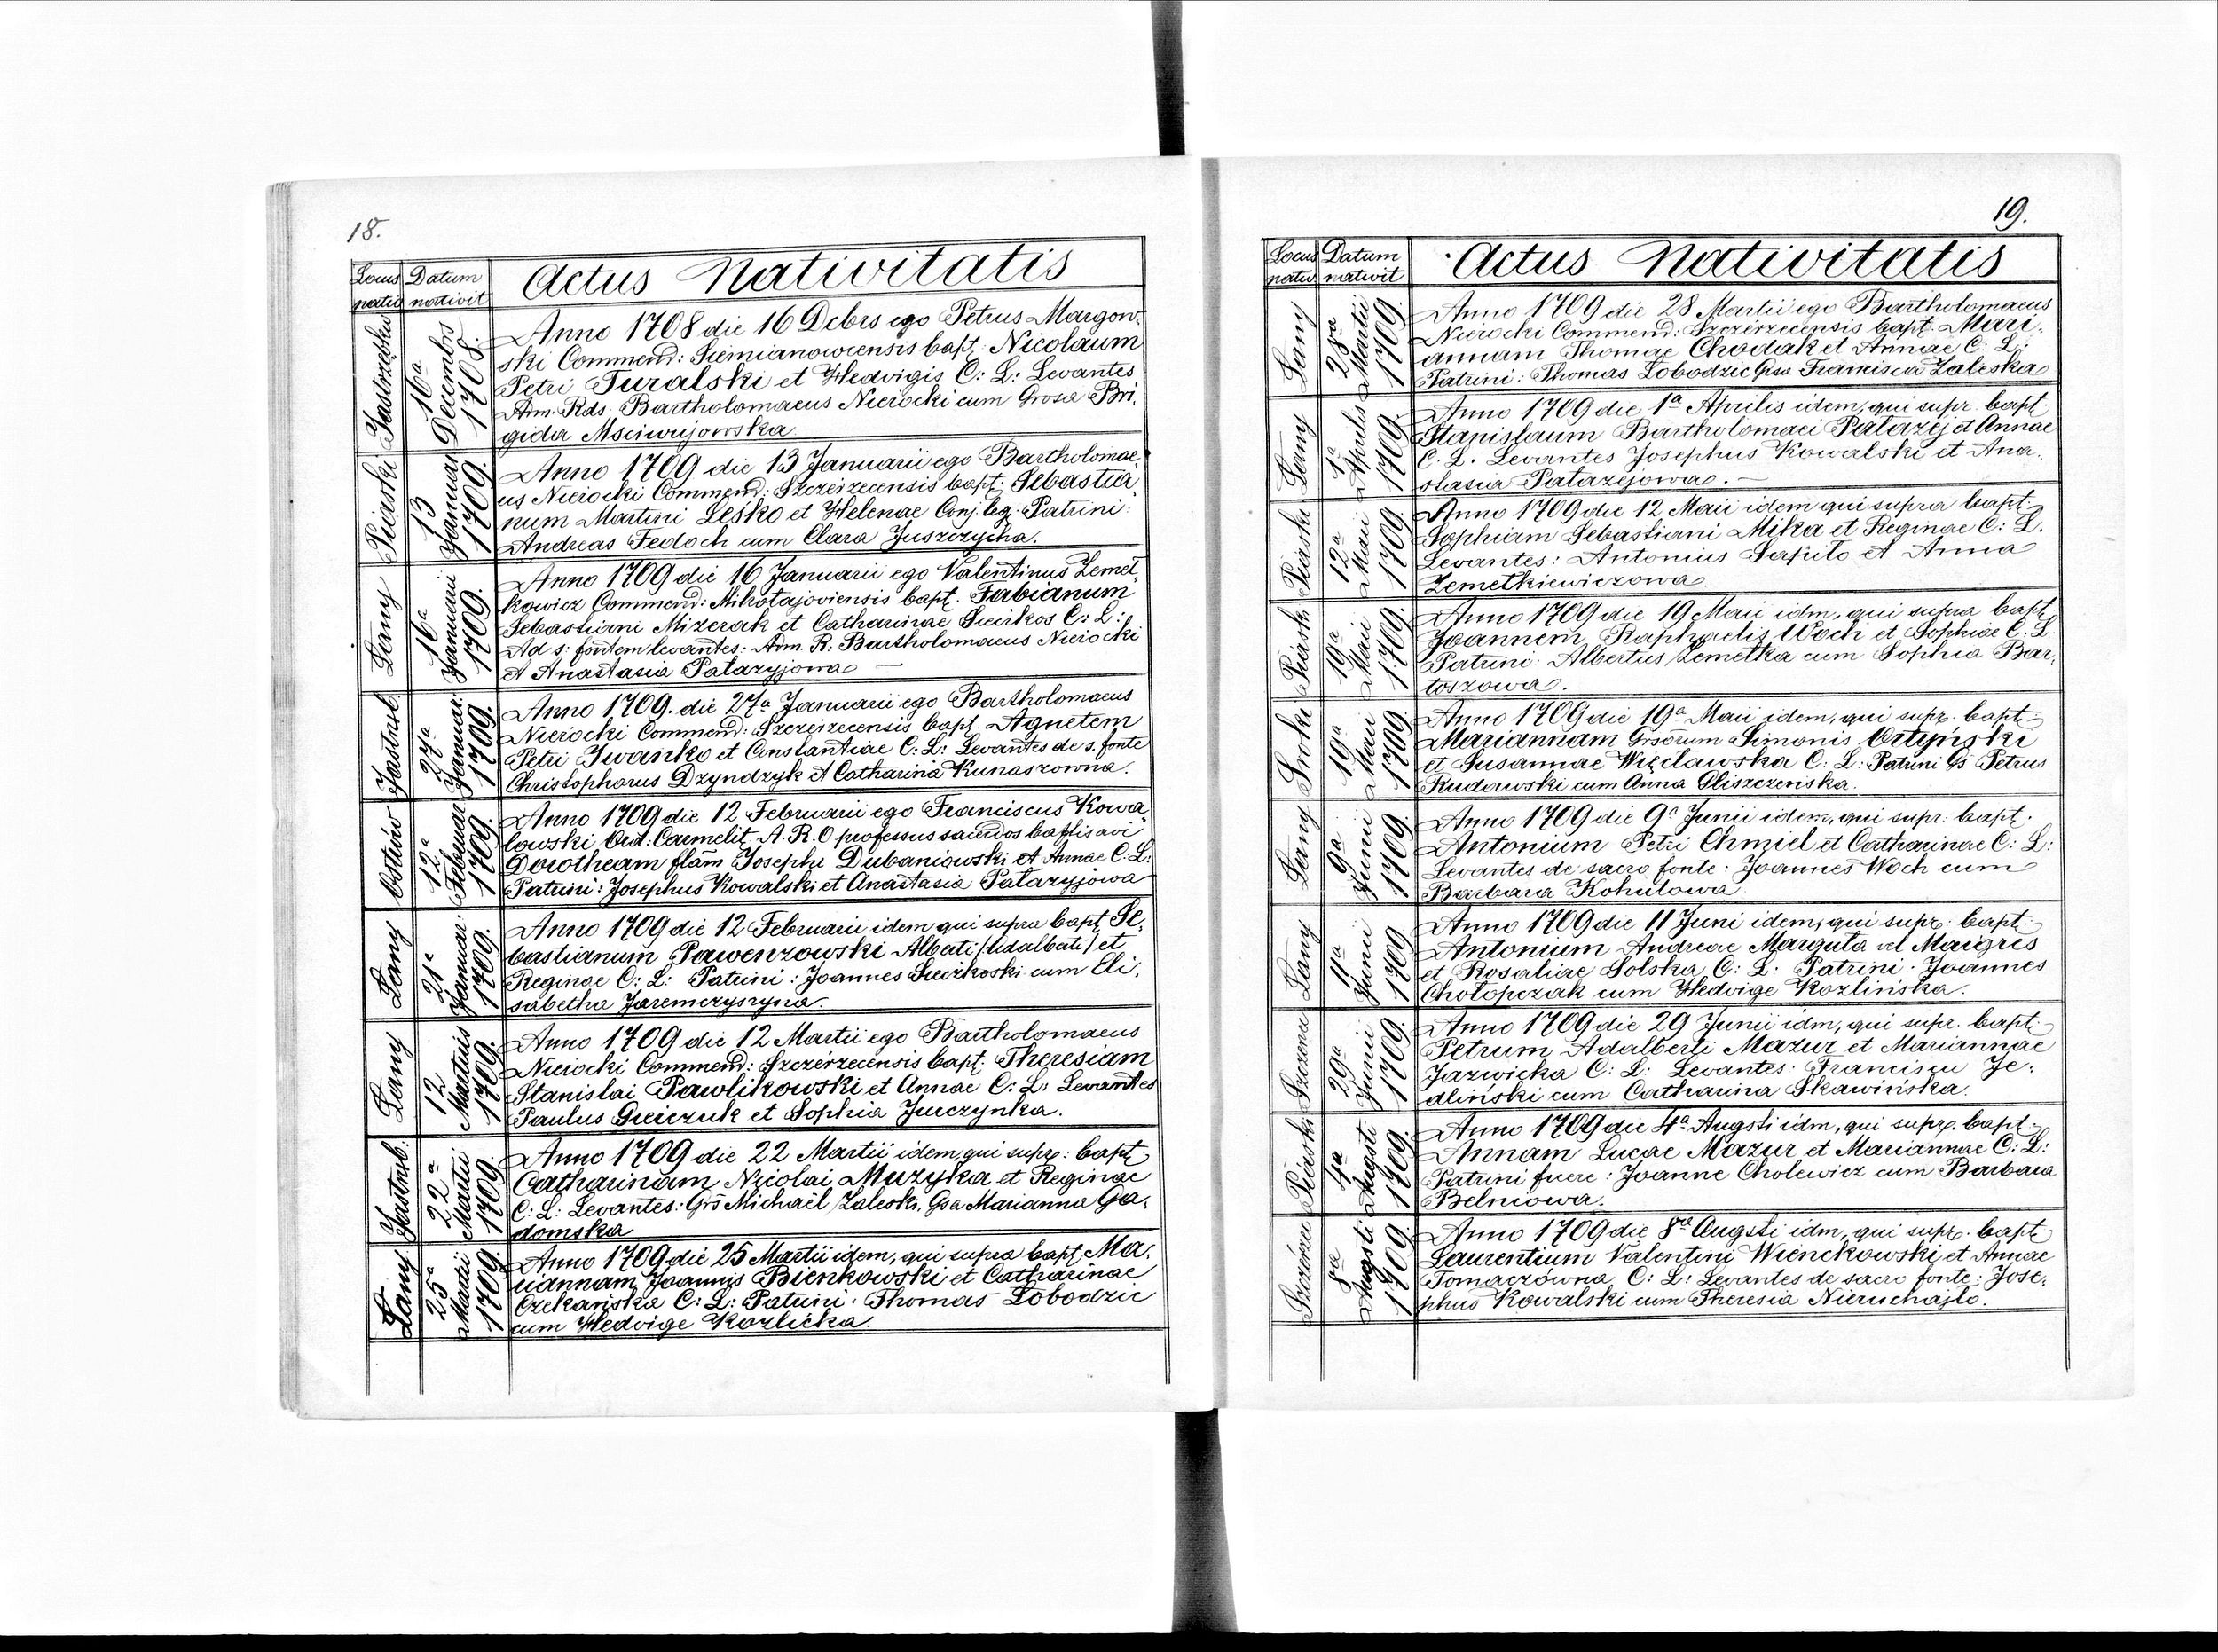 18.
Locus natiō
Datum nativit
Actus Nativitatis
Jastrzębka
16a Decembrs 1708.
Anno 1708 die 16 Debrs ego Petrus Margow-
ski Commend: Siemianowcensis bapt: Nicolaum
Petri Turalski et Hedvigis C: L: Levantes
Adm. Rds. Bartholomaeus Nierocki cum Grosa Bri-
gida Msciwujowska
Piaski
13 Januar 1709.
Anno 1709 die 13 Januarii ego Bartholomae-
us Nierocki Commend: Szczerzecensis bapt: Sebastia-
num Martini Leśko et Helenae Conj. leg. Patrini:
Andreas Fedoch cum Clara Juszczycha.
Łany
16a Januarii 1709.
Anno 1709 die 16 Januarii ego Valentinus Zemet-
kowicz Commend: Mikołajoviensis bapt. Fabianum
Sebastiani Mizerak et Catharinae Sieirkos C: L:
Ad s: fontem levantes: Adm. R: Bartholomaeus Nierocki
et Anastasia Patazyjowa —
Jastrub.
27a Januar: 1709.
Anno 1709. die 27a Januarii ego Bartholomaeus
Nierocki Commend: Szczerzecensis bapt. Agnetem
Petri Iwanko et Constantiae C: L: Levantes de s. fonte
Christophorus Dzyndzyk et Catharina Kunaszowna.
Ostrów
12a Februar 1709.
Anno 1709 die 12 Februarii ego Franciscus Kowa-
lowski Ord. Carmelit. A. R. O professus sacerdos baptisavi
Dorotheam flam Josephi Dubaniowski et Annae C. L:
Patrini: Josephus Kowalski et Anastasia Patazyjowa
Łany
21a Januar: 1709.
Anno 1709 die 12 Februarii idem qui supra bapt Se-
bastianum Pawenzowski Alberti /:Adalbati/ et
Reginae C: L: Patrini: Joannes Sieczkoski cum Eli-
sabetha Jaremczysryna.
Łany
12 Martius 1709.
Anno 1709 die 12 Martii ego Bartholomaeus
Nierocki Commend: Szczerzecensis bapt: Theresiam
Stanislai Pawlikowski et Annae C: L: Levantes
Paulus Greiczuk et Sophia Jurczynka.
Jastrub:
22a Martii 1709.
Anno 1709 die 22 Martii idem, qui supr: bapt
Catharinam Nicolai Muzyka et Reginae
C: L: Levantes: Grs Michaël Zaleski, Gsa Marianna Ga-
domska
Łany
25a Martii 1709.
Anno 1709 die 25 Martii idem, qui supra bapt, Ma-
riannam Joannis Bienkowski et Catharinae
Czekańska C: L: Patrini: Thomas Łobodzic
cum Hedvige Kozlicka.
19.
Locus natiō
Datum nativit
Actus Nativitatis
Łany
28va Martii 1709.
Anno 1709 die 28 Martii ego Bartholomaeus
Nierocki Commend: Szczerzecensis bapt. Mari-
annam Thomae Chodak et Annae C: L:
Patrini: Thomas Łobodzic Gsa Francisca Zaleska
Łany
1a Aprils 1709.
Anno 1709 die 1a Aprilis idem, qui supr. bapt.
Stanislaum Bartholomaei Patazÿ et Annae
C. L. Levantes Josephus Kowalski et Ana-
stasia Patazejowa. —
Piaski
12a Maii 1709
Anno 1709 die 12 Maii idem qui supra bapt:
Sophiam Sebastiani Mika et Reginae C: L.
Levantes: Antonius Sapito et Anna
Zemetkiewiczowa
Piaski
19a Maii 1709.
Anno 1709 die 19 Maii idm, qui supra bapt
Joannem Raphaelis Woch et Sophiae C: L:
Patrini: Albertus Zemetka cum Sophia Bar-
toszowa.
Sroki
19a Maii 1709.
Anno 1709 die 19a Maii idem, qui supr. bapt:
Mariannam Grsorum Simonis Ortyński
et Susannae Więcławska C: L: Patrini Gs Petrus
Rudawski cum Anna Gliszczeńska.
Łany
9a Junii 1709.
Anno 1709 die 9a Junii idem, qui supr: bapt.
Antonium Petri Chmiel et Catharinae C: L:
Levantes de sacro fonte: Joannes Woch cum
Barbara Kohutowa
Łany
11a Junii 1709
Anno 1709 die 11 Juni idem, qui supr: bapt:
Antonium Andreae Marguta vel Maigres
et Rosaliae Solska C: L: Patrini: Joannes
Chołopczak cum Hedvige Kozlińska.
29a Junii 1709.
Anno 1709 die 29 Junii idm, qui supr. bapt:
Petrum Adalberti Mazur et Mariannae
Jazwicka C: L: Levantes: Franciscu Je-
dliński cum Catharina Skawińska.
Piaski
4a Augsti 1709.
Anno 1709 die 4a Augsti idm, qui supr. bapt:
Annam Lucae Mazur et Mariannae C: L:
Patrini fuere: Joanne Cholewicz cum Barbara
Belniowa.
8va Augsti 1709.
Anno 1709 die 8va Augsti idm, qui supr. bapt
Laurentium Valentini Wienckowski et Annae
Tomaczówna C: L: Levantes de sacro fonte: Jose-
phus Kowalski cum Theresia Nieruchajło.